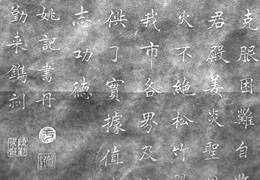 克服困難自
君殿姜炎聖
火不絕松竹
我市各界及
供了實據值
志功德
姚記書丹
勤來鐫刻